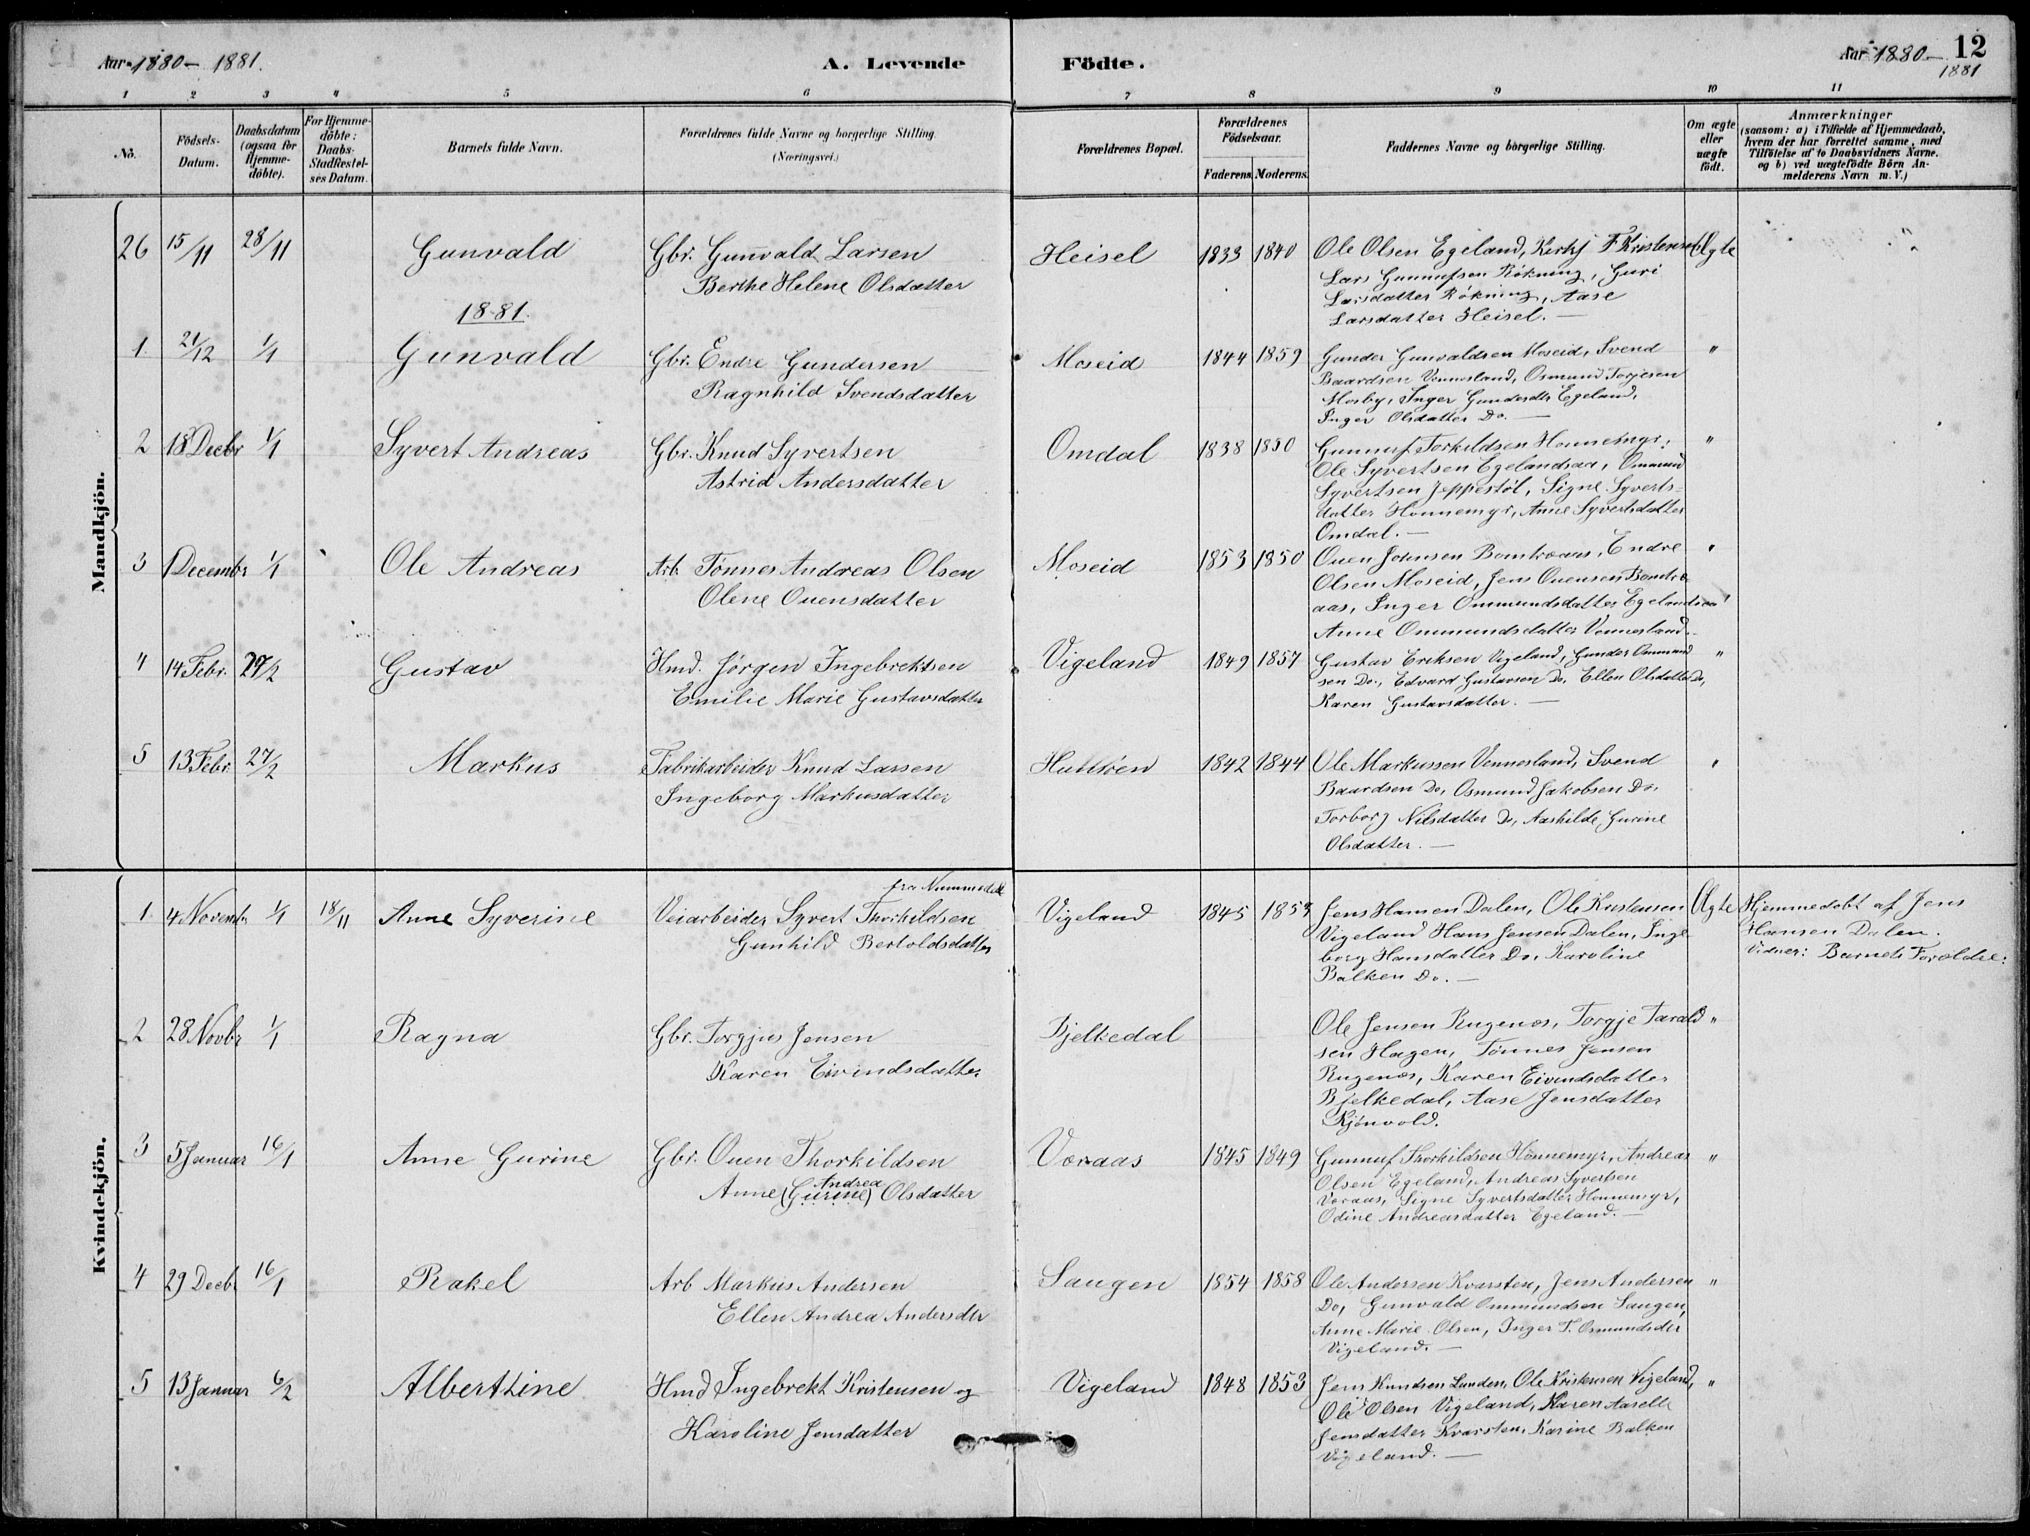 Aar 1880 - 1881.
A. Levende Födte.
Aar 1880 - 1881
12
1 2 3 4 5 6 7 8 9 10 11
No.
Födsels-Datum.
Daabsdatum (ogsaa for Hjemme-döbte).
For Hjemme-döbte: Daabs-Stadfæstel-ses Datum.
Barnets fulde Navn.
Forældrenes fulde Navne og borgerlige Stilling. (Næringsvei.)
Forældrenes Bopæl.
Forældrenes Födselsaar.
Faderens. Moderens.
Faddernes Navne og borgerlige Stilling.
Om ægte eller uægte födt.
Anmærkninger
(saasom: a) i Tilfælde af Hjemmedaab,
hvem der har forrettet samme, med
Tilföielse af to Daabsvidners Navne.
og b) ved uægtefödte Börn An-
melderens Navn m. V.)
Mandkjön.
26 15/11 28/11 Gunvald Gbr. Gunvald Larsen Heisel 1833 1840 Ole Olsen Egeland, Kirks F Kristensen Ægte
Berthe Helene Olsdatter Lars Gunnufsen Røkning, Guri
Larsdatter Røkning, Aase
1881. Larsdatter Heisel. —
1. 21/12 1/1 Gunvald Gbr. Endre Gundersen Moseid 1844 1859 Gunder Gunvaldsen Moseid, Svend "
Ragnhild Svendsdatter Baardsen Vennesland, Osmund Torjesen
Mosby, Inger Gundersdtr Egeland,
Inger Olsdatter Do. —
2 18 Decbr 1/1 Syvert Andreas Gbr. Knud Syvertsen Omdal 1838 1850 Gunnuf Torkildsen Honnemyr, "
Astrid Andersdatter Ole Syvertsen Egelandsaa, Ommund
Syvertsen Jeppestøl, Signe Syverts-
datter Honnemyr, Anne Syvertsdatter
Omdal. —
3 1 Decembr 1/1 Ole Andreas Arb. Tønnes Andreas Olsen Moseid 1853 1850 Ouen Johnsen Bomtraas, Endre "
Olene Ouensdatter Olsen Moseid, Jens Ouensen Bomtra-
aas, Inger Ommundsdatter Egelandsaa
Anne Ommundsdatter Vennesland.
4 14 Febr. 27/2 Gustav Hmd. Jørgen Ingebrektsen Vigeland 1849 1857 Gustav Eriksen Vigeland, Gunder Ommund "
Emilie Marie Gustavsdatter sen Do., Edvard Gustavsen Do, Ellen Olsdatter Do,
Karen Gustavsdatter. —
5 13 Febr. 27/2 Markus Fabrikarbeider Knud Larsen 1842 1844 Ole Markussen Vennesland, Svend "
Ingeborg Markusdatter Baardsen Do, Osmund Jakobsen Do,
Torborg Nilsdatter Do, Aashilde Gurine
Olsdatter. —
Kvindekjön.
fra Nummedal
1. 4 Novembr 1/1 18/11 Anne Syverine Veiarbeider Syvert Thorkildsen Vigeland 1845 1853 Jens Hansen Dalen, Ole Kristensen Ægte Hjemmedøbt af Jens
Gunhild Bertoldsdatter Vigeland Hans Jensen Dalen, Inge Hansen Dalen.
borg Hansdatter Do, Karoline Vidner: Barnets Forældre.
Balken Do. —
2 28 Novbr 1/1 Ragna Gbr. Torgjus Jensen Bjelkedal Ole Jensen Rugenæs, Torgje Tarald "
Karen Eivindsdatter sen Hagen, Tønnes Jensen
Rugenæs, Karen Eivindsdatter
Bjelkedal, Aase Jensdatter
Kjønvold.
3 5 Januar 16/1 Anne Gurine Gbr. Ouen Thorkildsen Voraas 1845 1849 Gunnuf Thorkildsen Honnemyr, Andreas "
Anne (Gurine) Andrea Olsdatter Olsen Egeland, Andreas Syvertsen
Voraas, Signe Syvertsdatter Honnemyr,
Odine Andreasdatter Egeland. —
4 29 Decbr 16/1 Rakel Arb Markus Andersen Saugen 1854 1858 Ole Andersen Kvarsten, Jens Andersen "
Ellen Andrea Andersdtr Do, Gunvald Ommundsen Saugen,
Anne Marie Olsen, Inger T. Osmundsdtr
Vigeland. —
5 13 Januar 6/2 Alberttine Hmd Ingebrekt Kristensen og Vigeland 1848 1853 Jens Knudsen Lunden, Ole Kristensen Vigeland, "
Karoline Jensdatter Ole Olsen Vigeland, Karen Aaselle
Jensdatter Kvarsten, Karine Balken
Vigeland. —